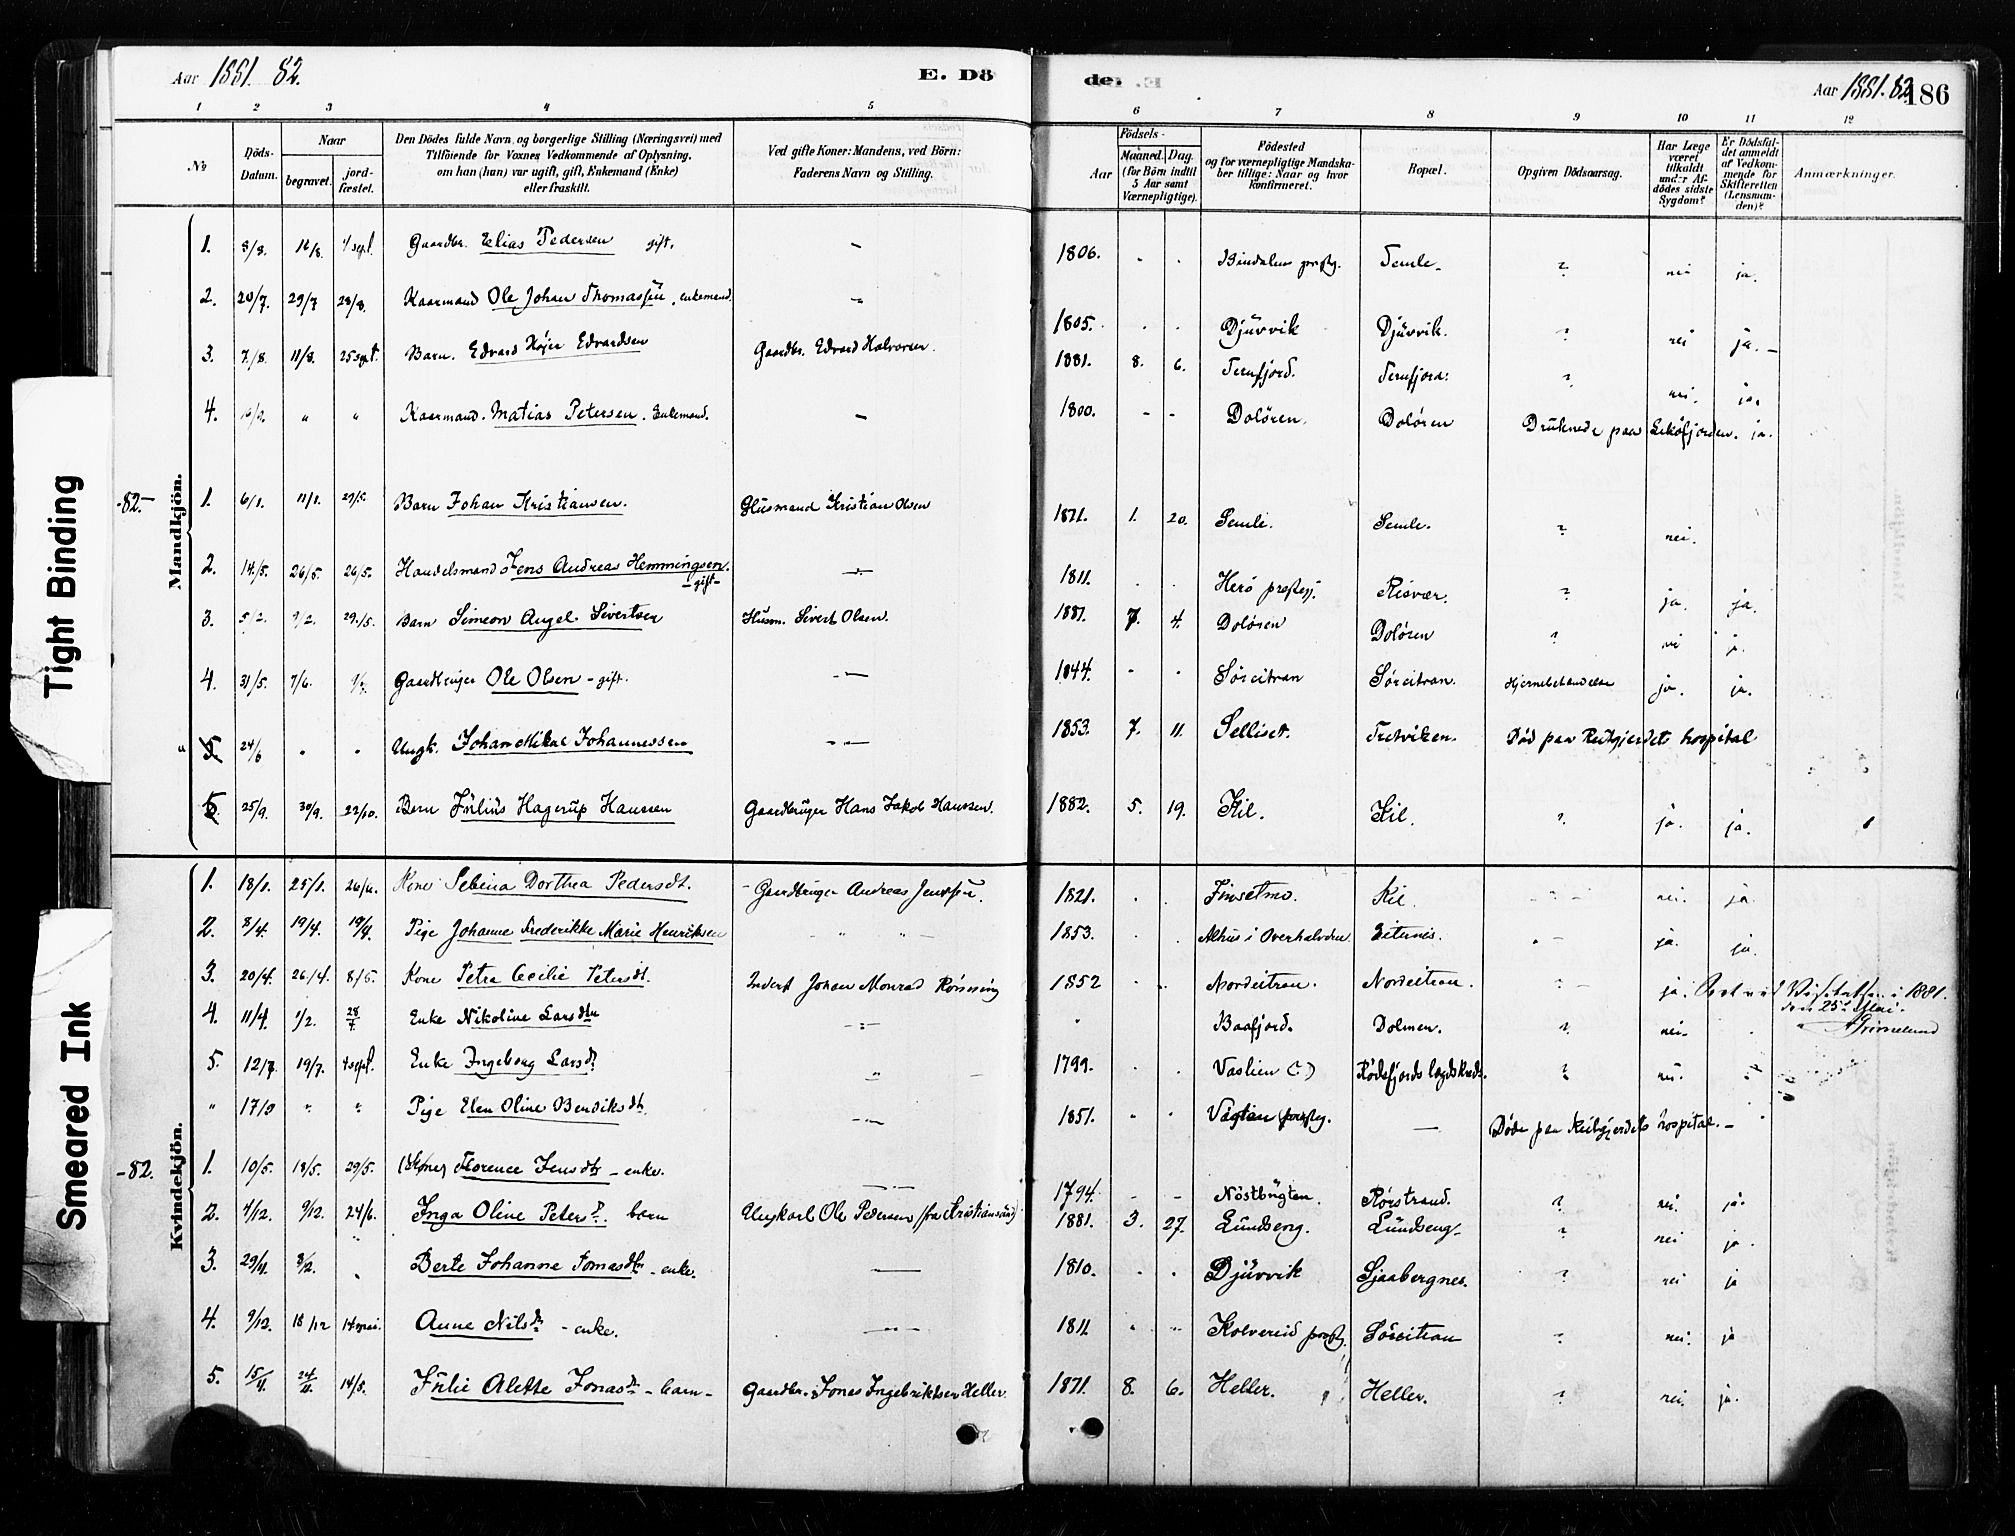 Aar 1881. 82.
E. Dö
de.
Aar 1881. 82.
186
1 2 3 4 5 6 7 8 9 10 11 12
No
Döds-Datum.
Naar
begravet.
jord-fæstet.
Den Dödes fulde Navn og borgerlige Stilling (Næringsvei) med
Tilföiende for Voxnes Vedkommende af Oplysning,
om han (hun) var ugift, gift, Enkemand (Enke)
eller fraskilt.
Ved gifte Koner: Mandens, ved Börn:
Faderens Navn og Stilling.
Födsels-
Aar
Maaned. Dag.
(for Börn indtil
5 Aar samt
Værnepligtige).
Födested
og for værnepligtige Mandska-
ber tillige: Naar og hvor
konfirmeret.
Bopæl.
Opgiven Dödsaarsag.
Har Læge
været
tilkaldt
under Af-
dödes sidste
Sygdom?
Er Dödsfal-
det anmeldt
af Vedkom-
mende for
Skifteretten
(Lensman-
den)?
Anmærkninger.
Mandkjön.
1. 3/8. 12/8. 4/sept. Gaardbr. Elias Pedersen gift. — 1806. Bindalens prestg. Temle. ? nei ja.
2. 20/7. 29/7 28/8. Kaarmand Ole Johan Thomassen. enkemand. — 1805. Djüvvik Djüvvik. ? nei ja. —
3. 7/8. 11/8. 25 sept. Barn. Edvard Edvardsen Gaardbr. Edvard Halvorsen. 1881. 8. 6. Terufjord. Terufjord. ? nei. ja.
4. " " Kaarmand. Matias Petersen. Enkemand. — 1800. Dolören. Dolören Druknede paa Leköfjorden. ja.
-82.—
1. 6/1. 11/1. Barn Johan Kristiansen. Husmand Kristian Olsen 1871. 1. 20. Semle. ? nei.
2. 14/5. 26/5. 26/5. Handelsmand Jens Andreas Hemmingsen. —gift— — 1811. Herö prestegj. Risvær. ? ja. ja.
3. 5/2. 9/2. 29./5. Barn Simeon Angel Sivertsen Husm. Sivert Olsen. 1881. 7. 4. Dolören Dolören ? nei ja.
4. 31/5. 7/6. Gaardbruger Ole Olsen - gift. — 1844. Sörcitran Sörcitran. ja. ja.
5 24/6 " " Ungk. Johan Mikal Johannessen — 1853. 7. 11. Selliset. Tretviken. Död paa Reitgjerdet hospital
5. 25/9. 30/9. 22/10. Barn Jülius Hagerup Hanssen Gaardbruger Hans Jakob Hanssen. 1882. 5. 19. Kil. Kil. ? ja. ja.
Kvindekjön.
1. 18/1. 25/1. 26/6. Kone Sebina Dorthea Pedersdt. Gaardbruger Andreas Jenssen. 1821. Finsetmo. Kil nei. ja.
2. 8/4. 19/4. 19/4. Pige Johanne Frederikke Marie Henriksen 1853. Alhus i Overhalvden. Eiternes. ja. ja.
3. 20/4. 26/4. 8/5. Kone Petra Cecilie Petersdt. Inderst Johan Monrad Rönning 1852 Nordeitran. Nordeitran. ja. Seet ved Visitatsen i 1881. den 25de Mai. Grimelund
4. 11/4. 1/2. 28/7 Enke Nikoline Larsdtn Baafjord. Dolmen. ? nei.
5. 12/7. 19/7. 4 sept. Enke Ingeborg Larsdt. 1799. Vaslien (?) Rödsfjords lægdskreds. ? nei.
" 17/9 " " Pige Elen Oline Bendiksdt. 1851. Vigten prestg. — Döde paa Reitgjerdets hospital. —
-82.
1. 10/5. 18/5. 29/5. (Kone) Florence Jensdtr - enke. 1794. Nöstbügten. Rörstrand. ? nei. ja.
2. 4/12. 9/12. 24/6. Inga Oline Petersd. barn Ungkarl Ole Pedersen (fra Kristiansund) 1881. 3. 27. Lundseng. Lundseng. ? nei ja.
3. 29/11. 8/2. " Berte Johanne Tomasdtr - enke. — 1810. Djüvvik Sjaabergnes. ? nei ja
4. 9/12. 18/12 14 mei. Anne Nilsdtr - enke. — 1811 Kolvereid prestg. Sörcitran ? nei. ja
5. 15/11. 24/11. 14/5. Jülie Alette Jonasdtr - barn - Gaardbr. Jonas Ingebriktsen Heller. 1871 8. 6. Heller. Heller. ? nei. ja.
Tight Binding
Smeared Ink